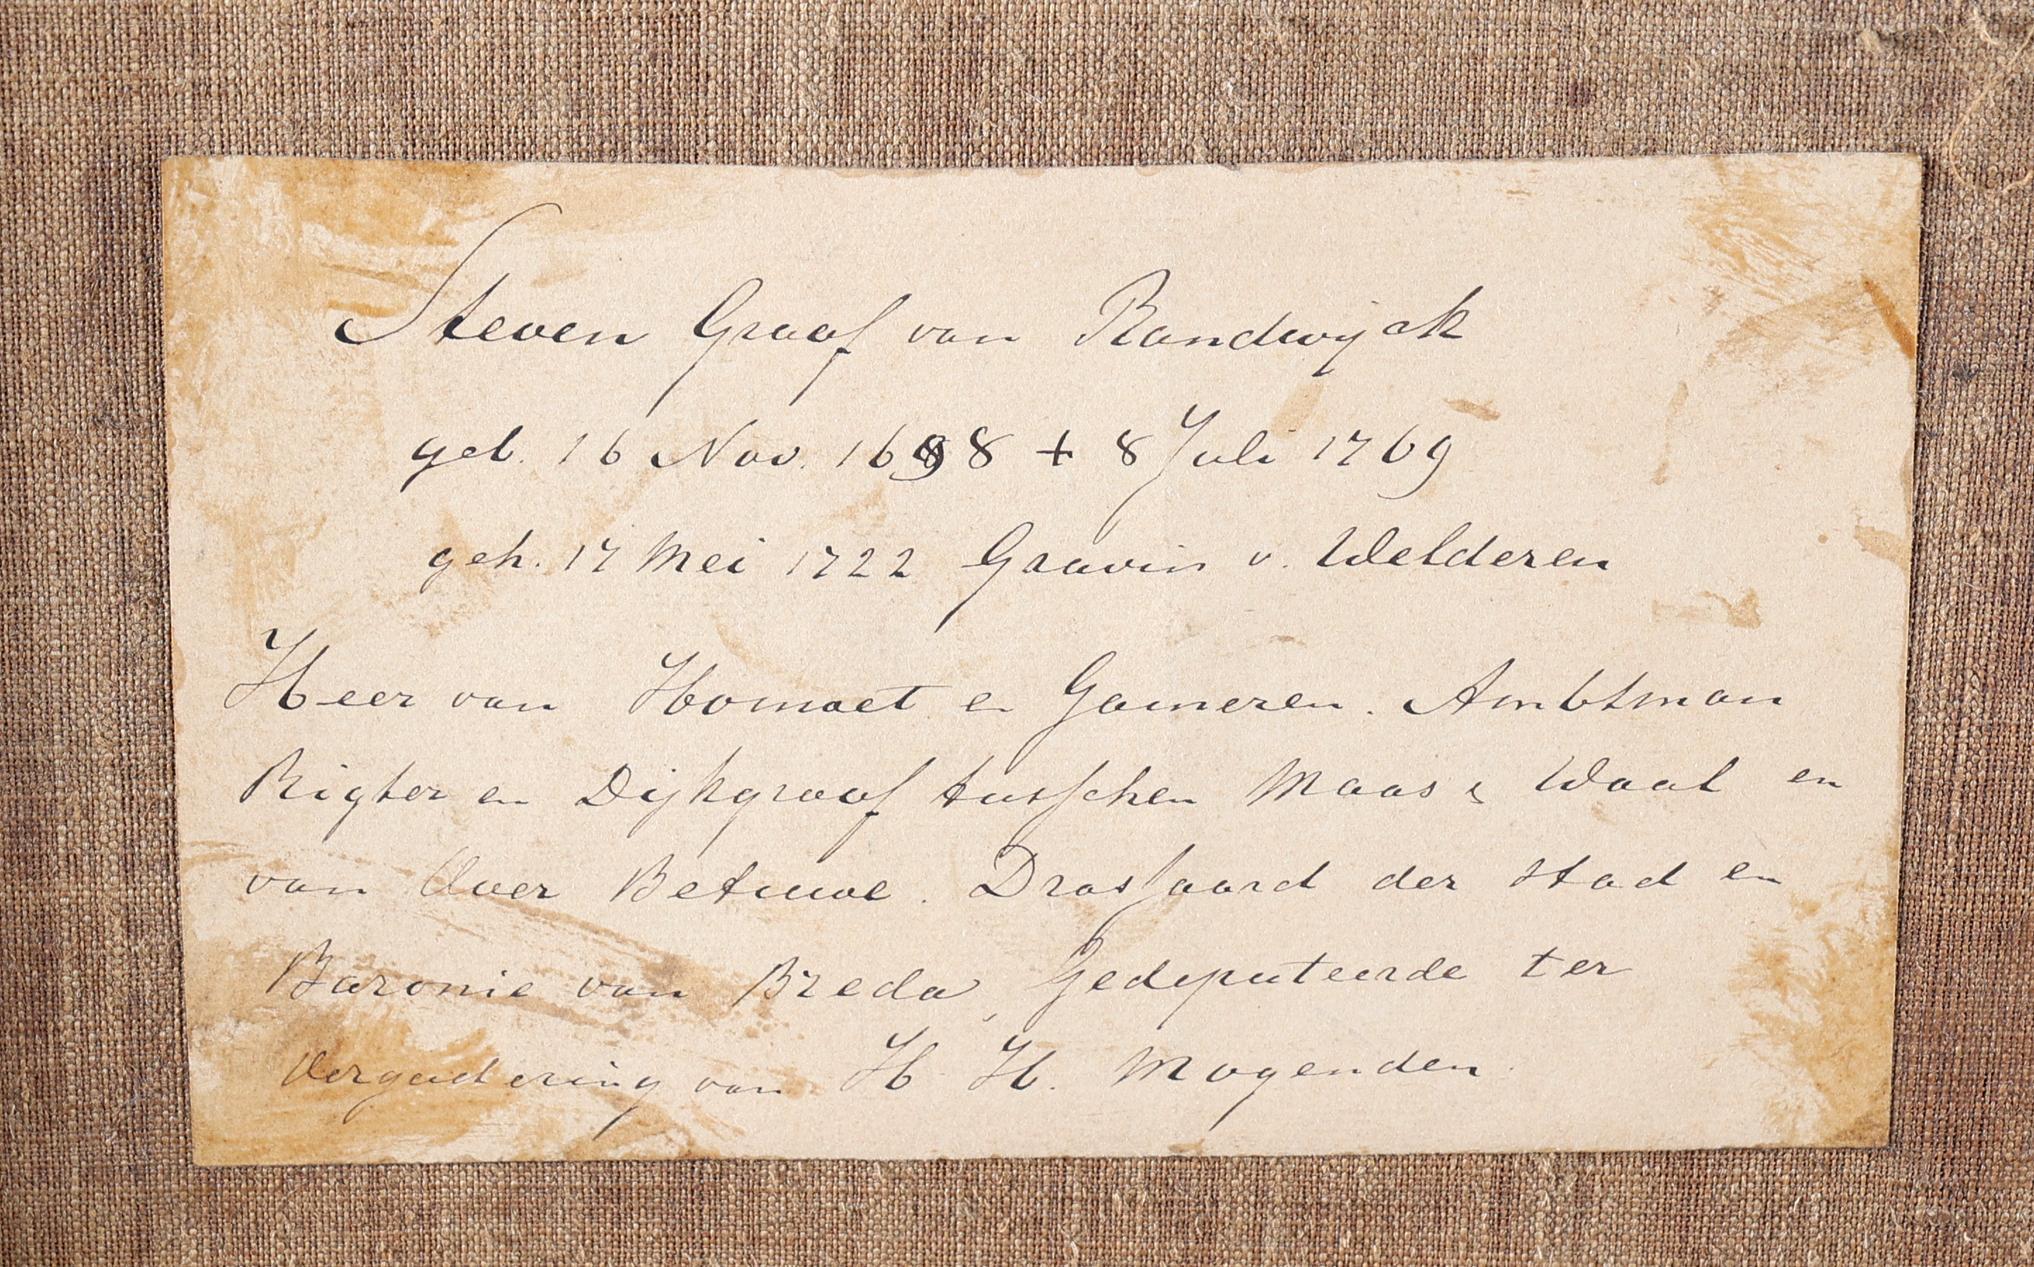 Steven Graaf van Randwijck
geb. 16 Nov. 1698 + 8 Juli 1769
geh. 17 Mei 1722 Gravin v. Welderen
Heer van Homoet en Gameren. Ambtman
Rigter en Dijkgraaf tusschen Maas & Waal en
van Over Betuwe. Drossaard der stad en
Baronie van Breda, Gedeputeerde ter
Vergadering van H. H. Mogenden.